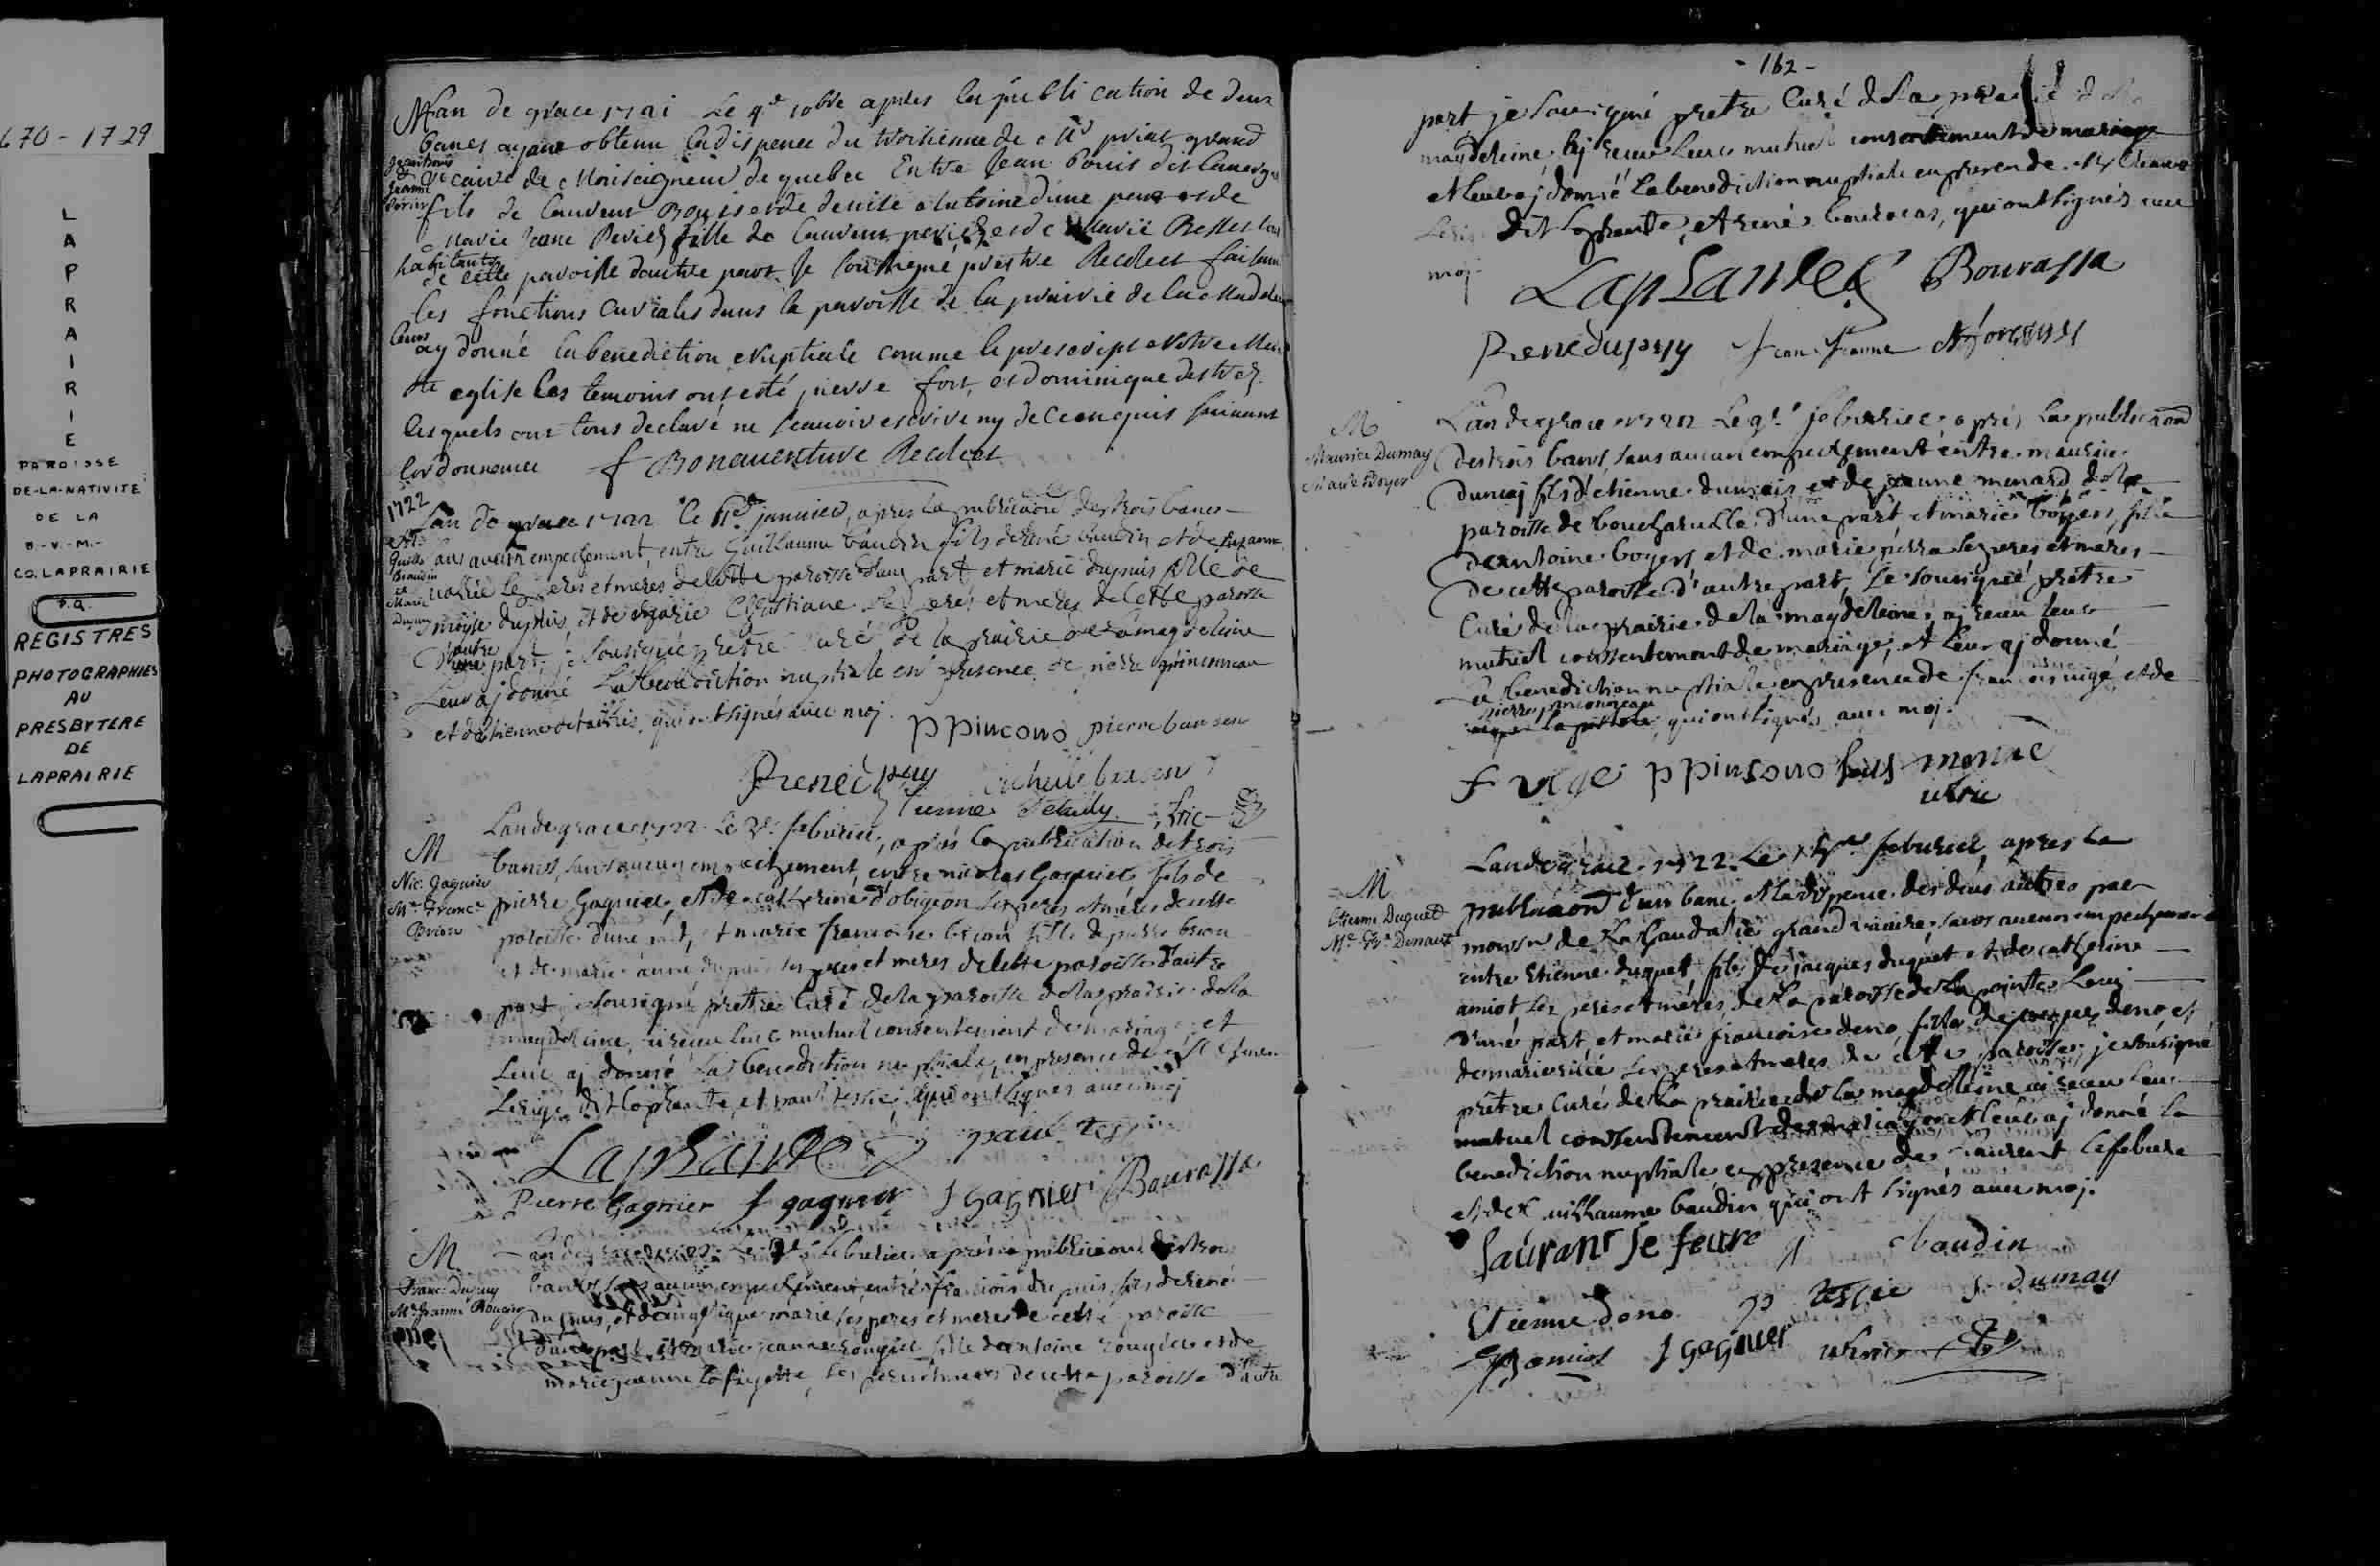 670-1729
L
A
P
R
A
I
R
I
E
PAROISSE
DE-LA-NATIVITE
DE LA
B.-V.-M.-
CO. LAPRAIRIE
P.Q.
REGISTRES
PHOTOGRAPHIES
AU
PRESBYTERE
DE
LAPRAIRIE
L'an de grace 1721 Le 9e 10bre apres la publication de deux
bancs ayant obtenu la dispence du troisieme de Mr priat grand
vicaire de Monseigneur de quebec Entre Jean bouis dit lauvergn
Jean bouis
et
Jeanne
Perier
fils de lauvens Bouis et de denise antoine dune part et de
Marie Jeane Periez fille de lauvens periez et de Marie Besset
habitants
de cette paroisse dautre part Je soussigné prestre Recolect faisant
les fonctions curiales dans la paroisse de la prairie de la Madelei
leurs
ay donné la benediction Nuptiale comme le prescript nostre Me
Ste eglise les temoins ont esté pierre fort, et dominique
lesquels ont tous declaré ne scauoir escrire ny de ce enquis suivant
lordonnance f Bonauenture Recolect
1722
Lan de grace 1722 le janvier, apres la publicaon des trois bancs
M
Guill
Beaudin
et
Marie
Dupuy
sans aucun empechement, entre Guillaume baudin fils de rené baudin et de suzanne
vallée les peres et meres de cette paroisse d'une part et marie dupuis fille de
moyse dupuis, et de marie Christiane les peres et meres de cette paroisse
d'autre
part, je sousigné prêtre curé de la prairie de la magdeleine
Leur aj donné La benediction nuptiale en presence de pierre pinconneau
et d'etienne qui ont signés avec moj.
ppincono pierre
Renedupuy
M
Nic. Gagnier
Me France
Brion
Lan de grace 1722 Le febvrier, après la publication de trois
bancs, sans aucun empechement, entre nicolas Gagnier fils de
pierre Gagnier, et de catherine d'obigeon les peres et mères de cette
paroisse d'une part, et marie francoise brion fille de pierre brion
et de marie anne dupuis les peres et meres de cette paroisse d'autre
part, je sousigné prêtre curé de la paroisse de la prairie de la
magdeleine, ai receu leur mutuel consentement de mariage et
Leur aj donné La benediction nuptiale en presence de
Lerige dit Laplante, et paul tessié, qui ont signés avec moj
Laplante paul tessie
Pierre Gagnier f gagnier J gagnier Bourassa
M
Franc. Dupuy
Me Jeanne Rougier
Lan de grace Le febvrier apres la publicaon des trois
bancs sans aucun empechement entre francois dupuis fils de rené
dupuis, et d'angelique marie les peres et meres de cette paroisse
d'une part et marie jeanne rougier fille d'antoine rougier et de
marie jeanne la fayette, les peres et meres de cette paroisse d'autre
-162-
part je sousigné prêtre Curé de la prairie de la
magdeleine, ay receu leurs mutuel consentement de mariage
et leur aj donné la benediction nuptiale en presence de
Lerige dit Laplante, et rené bourassa, qui ont signés avec
moj
Laplante Bourassa
Renedupuy
M
Maurice Dumay
Marie Boyer
L'an de grace 1722 Le 9e febvrier, après La publicaon
des trois bancs, sans aucun empechement entre maurice
dumaj fils d'etienne dumais et de jeanne menard de la
paroisse de boucherville d'une part et marie boyers, fille
d'antoine boyers et de marie perra les peres et meres
de cette paroisse d'autre part, Je sousigné prêtre
Curé de la prairie de la magdeleine, aj receu leur
mutuel consentement de mariage, et leur aj donné
La benediction nuptiale en presence de francois vigé, et de
pierre pinconneau
qui ont signés avec moj.
F vige ppincono
ulric
M
Etienne Duguet
Me Fse Denaut
Lan de grace 1722 Le febvrier, apres La
publicaon d'un banc et la dispence des deus autres par
monsr de La Gaudalie grand vicaire, sans aucun empechement
entre Etienne duquet fils de jacques duquet et de catherine
amiot les peres et mères de La paroisse de la pointe Levi
d'une part et marie francoise deno, fille de jacques deno et
de marie rivié les peres et meres de cette paroisse, je sousigné
prêtre Curé de la prairie de la magdeleine ai receu leur
mutuel consentement de mariage et leur aj donné la
benediction nuptiale en presence de laurent Lefebvre
et de Guilhaume baudin qui ont signés avec moj.
Laurant le febre baudin
Etienne deno p tessie dumay
amiot J gagnier ulric